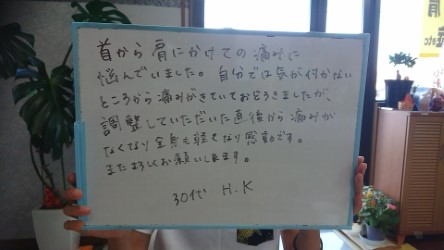 首から肩にかけての痛みに
悩んでいました。自分では気が付かない
ところから痛みがきていておどろきましたが、
調整していただいた直後から痛みが
なくなり全身も軽くなり感動です。
またよろしくお願いします。
30代 H.K
etc